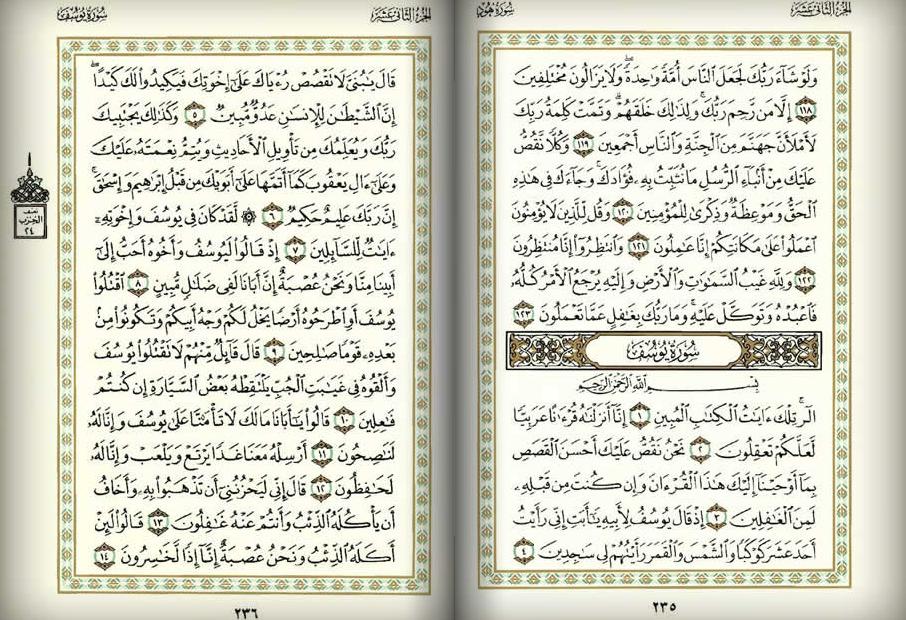 الجزء الثاني عشر
سورة هود
وَلَوْ شَآءَ رَبُّكَ لَجَعَلَ ٱلنَّاسَ أُمَّةً وَٰحِدَةً ۖ وَلَا يَزَالُونَ مُخْتَلِفِينَ
١١٨ إِلَّا مَن رَّحِمَ رَبُّكَ ۚ وَلِذَٰلِكَ خَلَقَهُمْ ۗ وَتَمَّتْ كَلِمَةُ رَبِّكَ
لَأَمْلَأَنَّ جَهَنَّمَ مِنَ ٱلْجِنَّةِ وَٱلنَّاسِ أَجْمَعِينَ ١١٩ وَكُلًّا نَّقُصُّ
عَلَيْكَ مِنْ أَنۢبَآءِ ٱلرُّسُلِ مَا نُثَبِّتُ بِهِۦ فُؤَادَكَ ۚ وَجَآءَكَ فِى هَٰذِهِ
ٱلْحَقُّ وَمَوْعِظَةٌ وَذِكْرَىٰ لِلْمُؤْمِنِينَ ١٢٠ وَقُل لِّلَّذِينَ لَا يُؤْمِنُونَ
ٱعْمَلُوا۟ عَلَىٰ مَكَانَتِكُمْ إِنَّا عَٰمِلُونَ ١٢١ وَٱنتَظِرُوٓا۟ إِنَّا مُنتَظِرُونَ
١٢٢ وَلِلَّهِ غَيْبُ ٱلسَّمَٰوَٰتِ وَٱلْأَرْضِ وَإِلَيْهِ يُرْجَعُ ٱلْأَمْرُ كُلُّهُۥ
فَٱعْبُدْهُ وَتَوَكَّلْ عَلَيْهِ ۚ وَمَا رَبُّكَ بِغَٰفِلٍ عَمَّا تَعْمَلُونَ ١٢٣
سُورَةُ يُوسُفَ
بِسْمِ ٱللَّهِ ٱلرَّحْمَٰنِ ٱلرَّحِيمِ
الٓر ۚ تِلْكَ ءَايَٰتُ ٱلْكِتَٰبِ ٱلْمُبِينِ ١ إِنَّآ أَنزَلْنَٰهُ قُرْءَٰنًا عَرَبِيًّا
لَّعَلَّكُمْ تَعْقِلُونَ ٢ نَحْنُ نَقُصُّ عَلَيْكَ أَحْسَنَ ٱلْقَصَصِ
بِمَآ أَوْحَيْنَآ إِلَيْكَ هَٰذَا ٱلْقُرْءَانَ وَإِن كُنتَ مِن قَبْلِهِۦ
لَمِنَ ٱلْغَٰفِلِينَ ٣ إِذْ قَالَ يُوسُفُ لِأَبِيهِ يَٰٓأَبَتِ إِنِّى رَأَيْتُ
أَحَدَ عَشَرَ كَوْكَبًا وَٱلشَّمْسَ وَٱلْقَمَرَ رَأَيْتُهُمْ لِى سَٰجِدِينَ ٤
٢٣٥
الجزء الثاني عشر
سورة يوسف
قَالَ يَٰبُنَىَّ لَا تَقْصُصْ رُءْيَاكَ عَلَىٰٓ إِخْوَتِكَ فَيَكِيدُوا۟ لَكَ كَيْدًا ۖ
إِنَّ ٱلشَّيْطَٰنَ لِلْإِنسَٰنِ عَدُوٌّ مُّبِينٌ ٥ وَكَذَٰلِكَ يَجْتَبِيكَ
رَبُّكَ وَيُعَلِّمُكَ مِن تَأْوِيلِ ٱلْأَحَادِيثِ وَيُتِمُّ نِعْمَتَهُۥ عَلَيْكَ
وَعَلَىٰٓ ءَالِ يَعْقُوبَ كَمَآ أَتَمَّهَا عَلَىٰٓ أَبَوَيْكَ مِن قَبْلُ إِبْرَٰهِيمَ وَإِسْحَٰقَ ۚ
إِنَّ رَبَّكَ عَلِيمٌ حَكِيمٌ ٦ ۞ لَّقَدْ كَانَ فِى يُوسُفَ وَإِخْوَتِهِۦٓ
ءَايَٰتٌ لِّلسَّآئِلِينَ ٧ إِذْ قَالُوا۟ لَيُوسُفُ وَأَخُوهُ أَحَبُّ إِلَىٰٓ
أَبِينَا مِنَّا وَنَحْنُ عُصْبَةٌ إِنَّ أَبَانَا لَفِى ضَلَٰلٍ مُّبِينٍ ٨ ٱقْتُلُوا۟
يُوسُفَ أَوِ ٱطْرَحُوهُ أَرْضًا يَخْلُ لَكُمْ وَجْهُ أَبِيكُمْ وَتَكُونُوا۟ مِنۢ
بَعْدِهِۦ قَوْمًا صَٰلِحِينَ ٩ قَالَ قَآئِلٌ مِّنْهُمْ لَا تَقْتُلُوا۟ يُوسُفَ
وَأَلْقُوهُ فِى غَيَٰبَتِ ٱلْجُبِّ يَلْتَقِطْهُ بَعْضُ ٱلسَّيَّارَةِ إِن كُنتُمْ
فَٰعِلِينَ ١٠ قَالُوا۟ يَٰٓأَبَانَا مَا لَكَ لَا تَأْمَ۫نَّا عَلَىٰ يُوسُفَ وَإِنَّا لَهُۥ
لَنَٰصِحُونَ ١١ أَرْسِلْهُ مَعَنَا غَدًا يَرْتَعْ وَيَلْعَبْ وَإِنَّا لَهُۥ
لَحَٰفِظُونَ ١٢ قَالَ إِنِّى لَيَحْزُنُنِىٓ أَن تَذْهَبُوا۟ بِهِۦ وَأَخَافُ
أَن يَأْكُلَهُ ٱلذِّئْبُ وَأَنتُمْ عَنْهُ غَٰفِلُونَ ١٣ قَالُوا۟ لَئِنْ
أَكَلَهُ ٱلذِّئْبُ وَنَحْنُ عُصْبَةٌ إِنَّآ إِذًا لَّخَٰسِرُونَ ١٤
نصف
الحزب
٢٤
٢٣٦